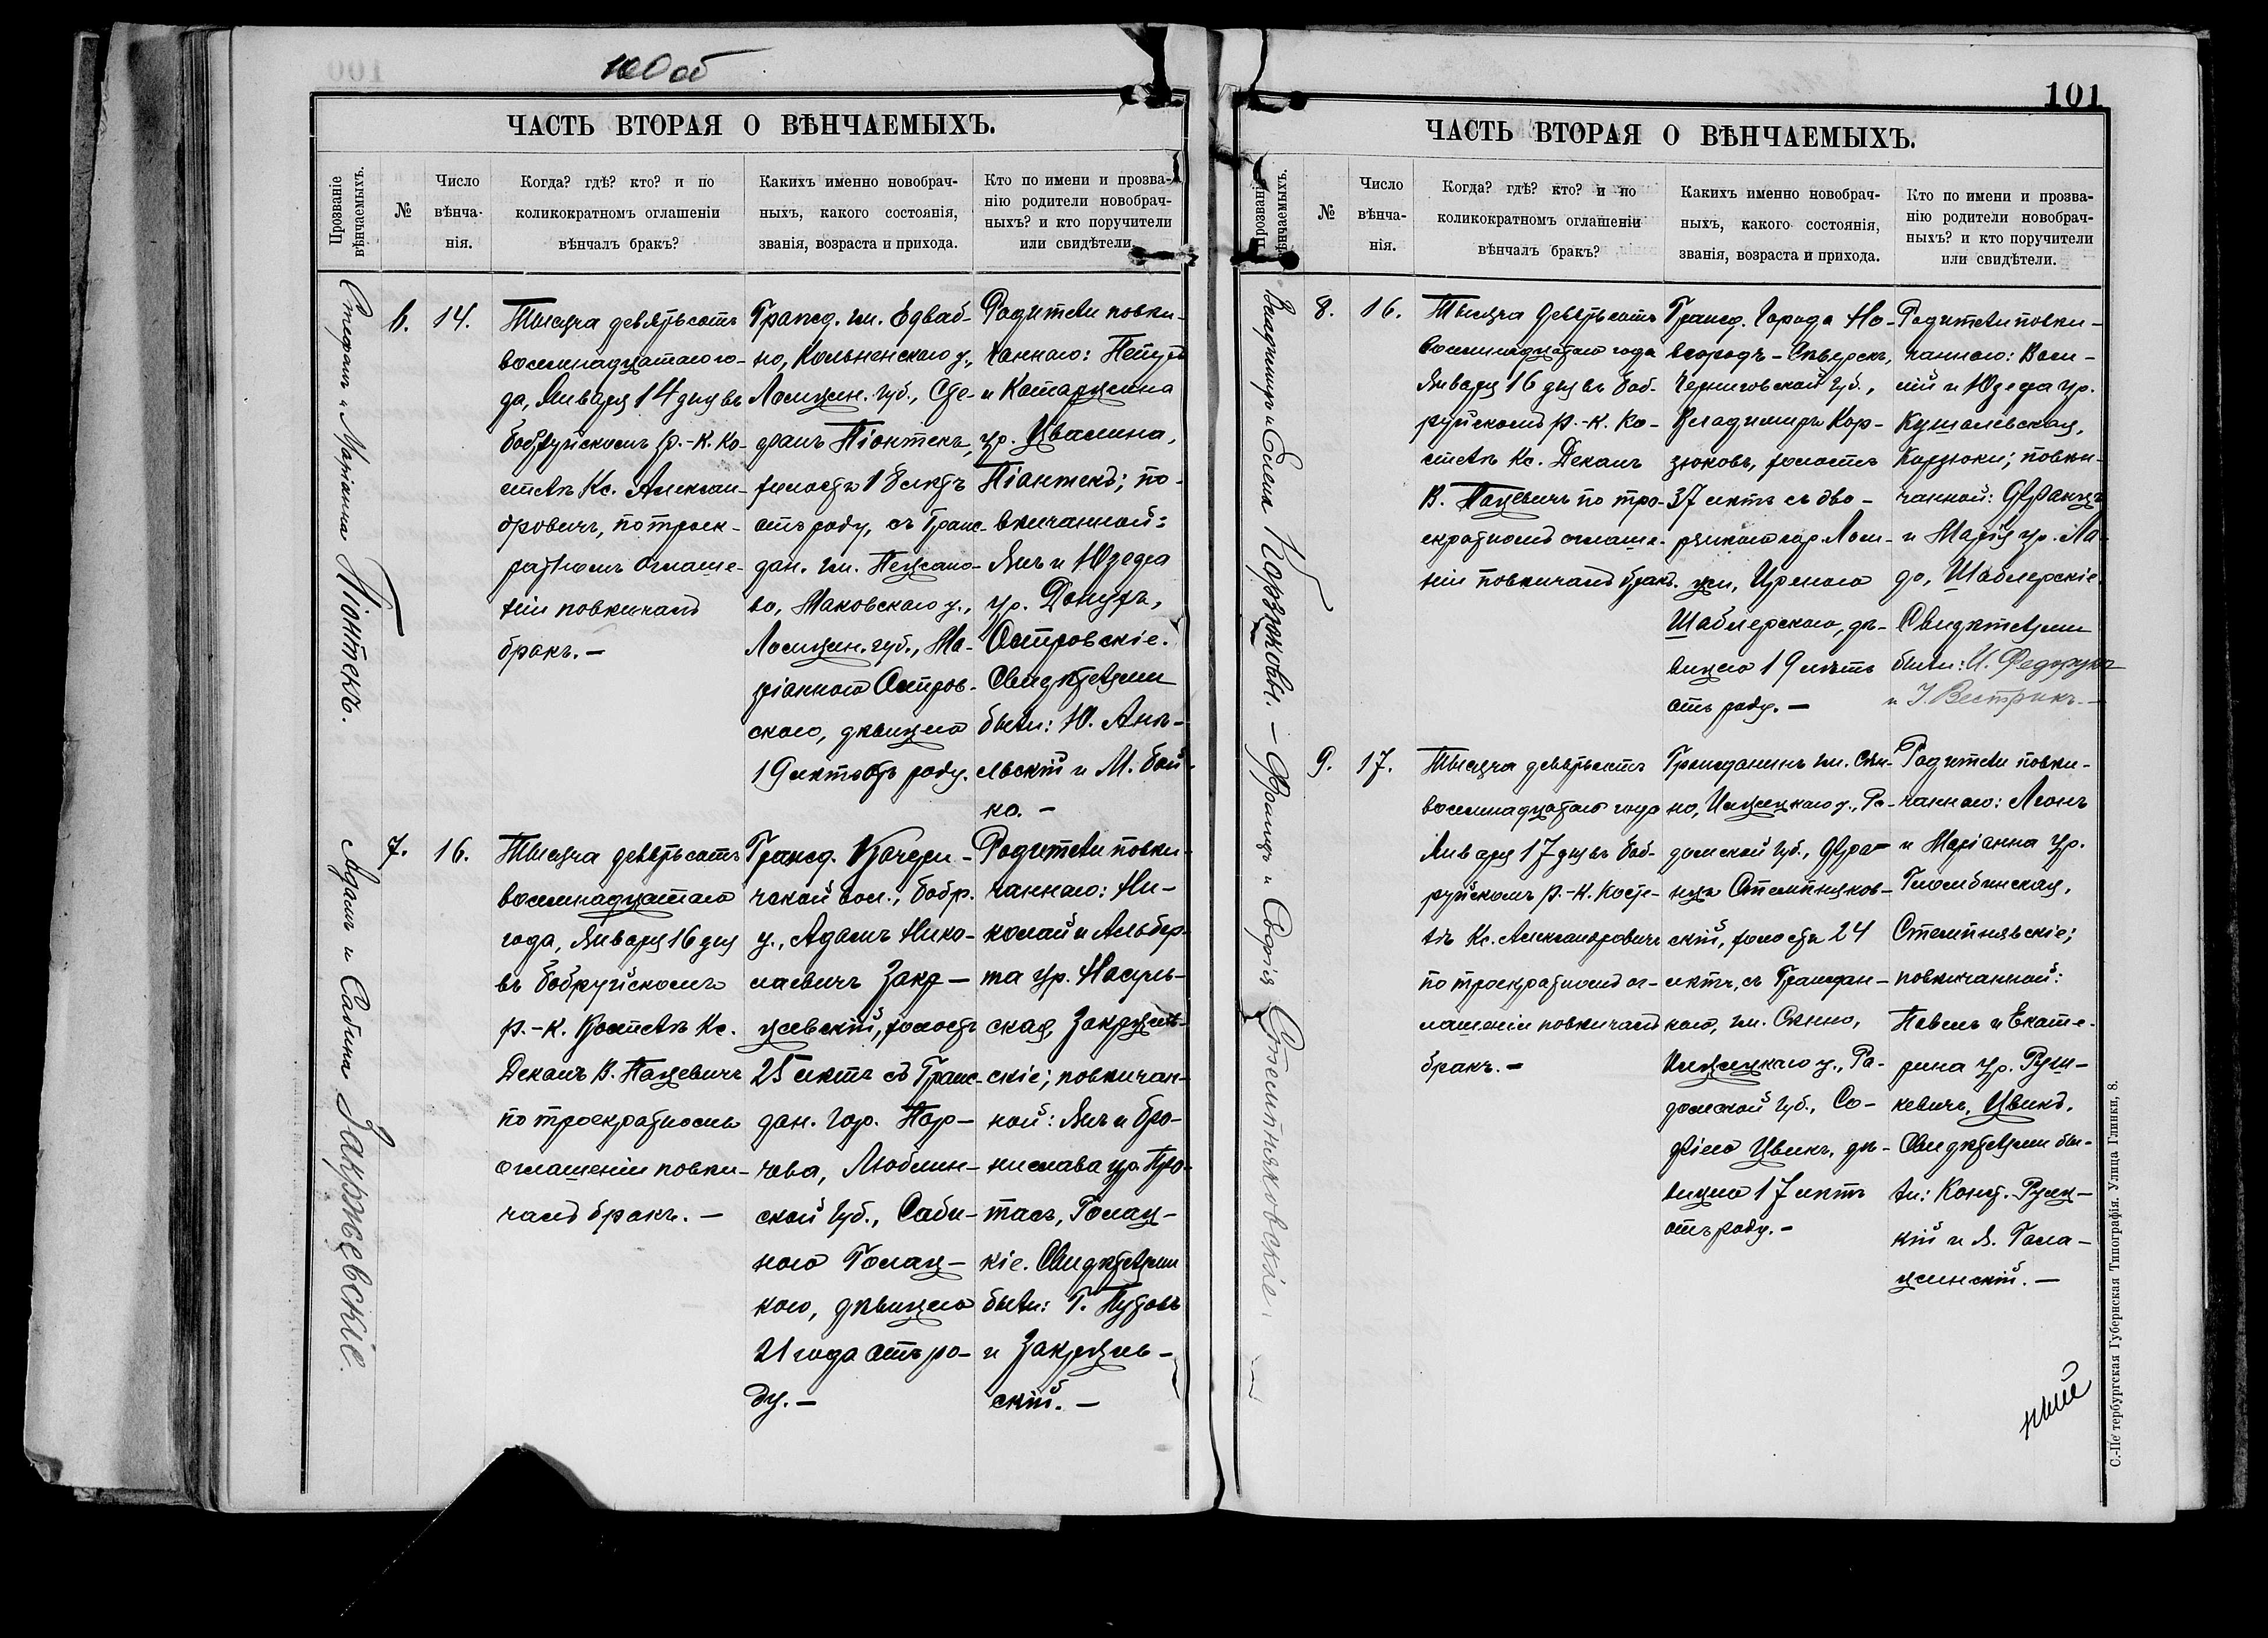 100 об
ЧАСТЬ ВТОРАЯ О ВѢНЧАЕМЫХЪ.
Прозваніе вѣнчаемыхъ.
№
Число вѣнча-нія.
Когда? гдѣ? кто? и по
коликократномъ оглашеніи
вѣнчалъ бракъ?
Какихъ именно новобрач-
ныхъ, какого состоянія,
званія, возраста и прихода.
Кто по имени и прозва-
нію родители новобрач-
ныхъ? и кто поручители
или свидѣтели.
Стефанъ и Маріанна Піонтекъ.
6.
14.
Тысяча девятьсотъ
восемнадцатаго го-
да, Января 14 дня въ
Бобруйскомъ р.-к. ко-
стелѣ Кс. Алексан-
дровичъ, по троек-
ратномъ оглаше-
ніи повѣнчалъ
бракъ. —
Гражд. гм. Едваб-
но, Кольненскаго у.,
Ломжин. губ., Сте-
фанъ Піонтекъ,
холостъ 18 лѣтъ
отъ роду, съ Граж-
дан. гм.
во, Маковскаго у.,
Ломжин. губ., Ма-
ріанною Остров-
скою, дѣвицею
19 лѣтъ отъ роду.
Родители повѣн-
чаннаго: Петръ
и Катаржина
ур. Цвалина,
Піонтекъ; по-
вѣнчанной:
Янъ и Юзефа
ур.
Островскіе.
Свидѣтелями
были: Ю.
и М. Бой-
ко. —
Адамъ и Сабина Закржевскіе.
7.
16.
Тысяча девятьсотъ
восемнадцатаго
года, Января 16 дня
въ Бобруйскомъ
р.-к. Костелѣ Кс.
Деканъ В. Пацевичъ
по троекратномъ
оглашеніи повѣн-
чалъ бракъ. —
Гражд. Качери-
чской вол., Бобр.
у., Адамъ Нико-
лаевичъ Закр-
жевскій, холостъ
25 лѣтъ съ Граж-
дан. гор. Пар-
чева, Люблин-
ской губ., Саби-
ною Голац-
кою, дѣвицею
21 года отъ ро-
ду. —
Родители повѣн-
чаннаго: Ни-
колай и Альбер-
та ур.
ская, Закржев-
скіе; повѣнчан-
ной: Янъ и Бро-
нислава ур. Про-
тасъ, Голац-
кіе. Свидѣтелями
были: Г.
и Закржев-
скій. —
101
ЧАСТЬ ВТОРАЯ О ВѢНЧАЕМЫХЪ.
Прозваніе вѣнчаемыхъ.
№
Число вѣнча-нія.
Когда? гдѣ? кто? и по
коликократномъ оглашеніи
вѣнчалъ бракъ?
Какихъ именно новобрач-
ныхъ, какого состоянія,
званія, возраста и прихода.
Кто по имени и прозва-
нію родители новобрач-
ныхъ? и кто поручители
или свидѣтели.
Владимиръ и Корзюковы. —
8.
16.
Тысяча девятьсотъ
восемнадцатаго года
Января 16 дня въ Боб-
руйскомъ р.-к. Ко-
стелѣ Кс. Деканъ
В. Пацевичъ по тро-
екратномъ оглаше-
ніи повѣнчалъ бракъ.
Гражд. Города Но-
вгородъ-Сѣверск,
Черниговской губ.,
Владимиръ Кор-
зюковъ, холостъ
37 лѣтъ съ дво-
рянкою гор. Лом-
жи, Иреною
Шаблерскою, дѣ-
вицею 19 лѣтъ
отъ роду. —
Родители повѣн-
чаннаго: Васи-
лій и Юзефа ур.
Кушалевская,
Корзюки; повѣн-
чанной: Францъ
и Марія ур. Ла-
до, Шаблерскіе.
Свидѣтелями
были: И.
и І. Вестрикъ. —
Францъ и Софія Стемпняковскіе.
9.
17.
Тысяча девятьсотъ
восемнадцатаго года
Января 17 дня въ Боб-
руйскомъ р.-к. Косте-
лѣ Кс. Александровичъ
по троекратномъ ог-
лашеніи повѣнчалъ
бракъ. —
Гражданинъ гм. Сѣн-
но, Илжецкаго у., Ра-
домской губ., Фран-
цъ Стемпняков-
скій, холостъ 24
лѣтъ, съ Граждан-
кою, гм. Сѣнно,
Илжецкаго у., Ра-
домской губ., Со-
фіею Цвикъ, дѣ-
вицею 17 лѣтъ
отъ роду. —
Родители повѣн-
чаннаго: Леонъ
и Маріанна ур.
Гломбинская,
Стемпнявскіе;
повѣнчанной:
Павелъ и Екате-
рина ур. Руш-
кевичъ, Цвикъ.
Свидѣтелями бы-
ли: Конст. Руец-
кій и Я. Гала-
жинскій. —
С.-Петербургская Губернская Типографія. Улица Глинки, 8.